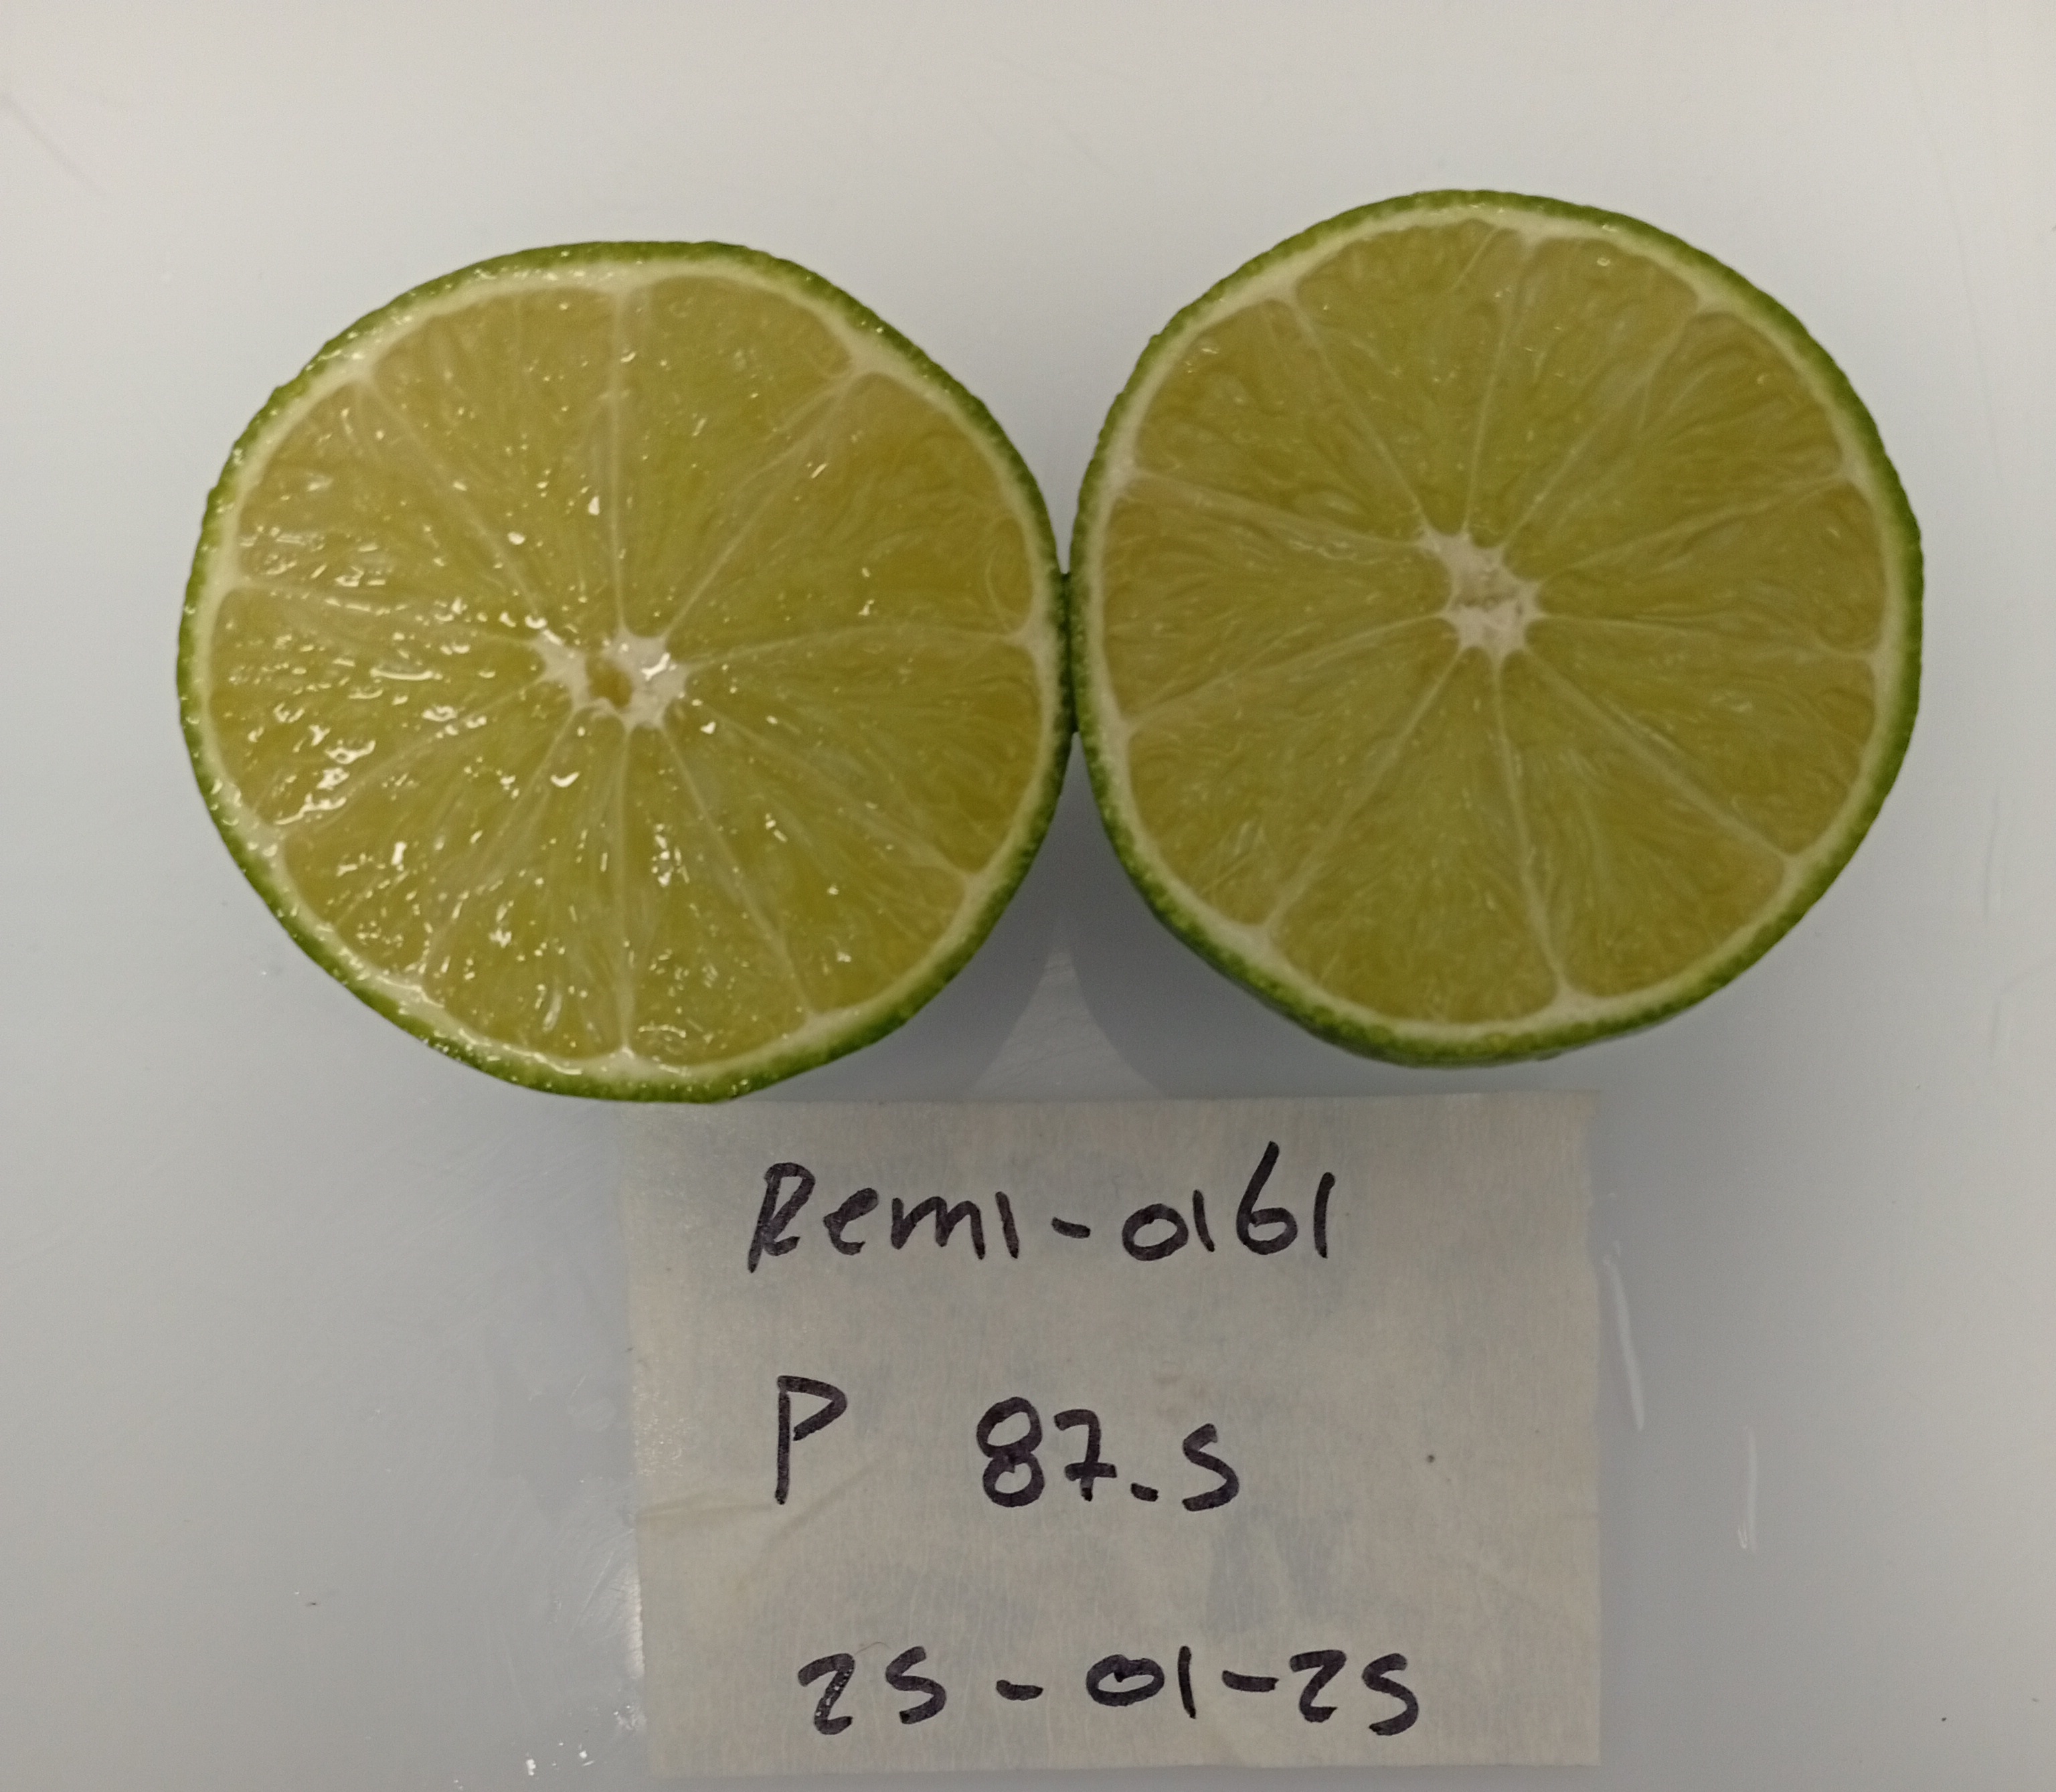 Remi-0161
P 87.5
25-01-25